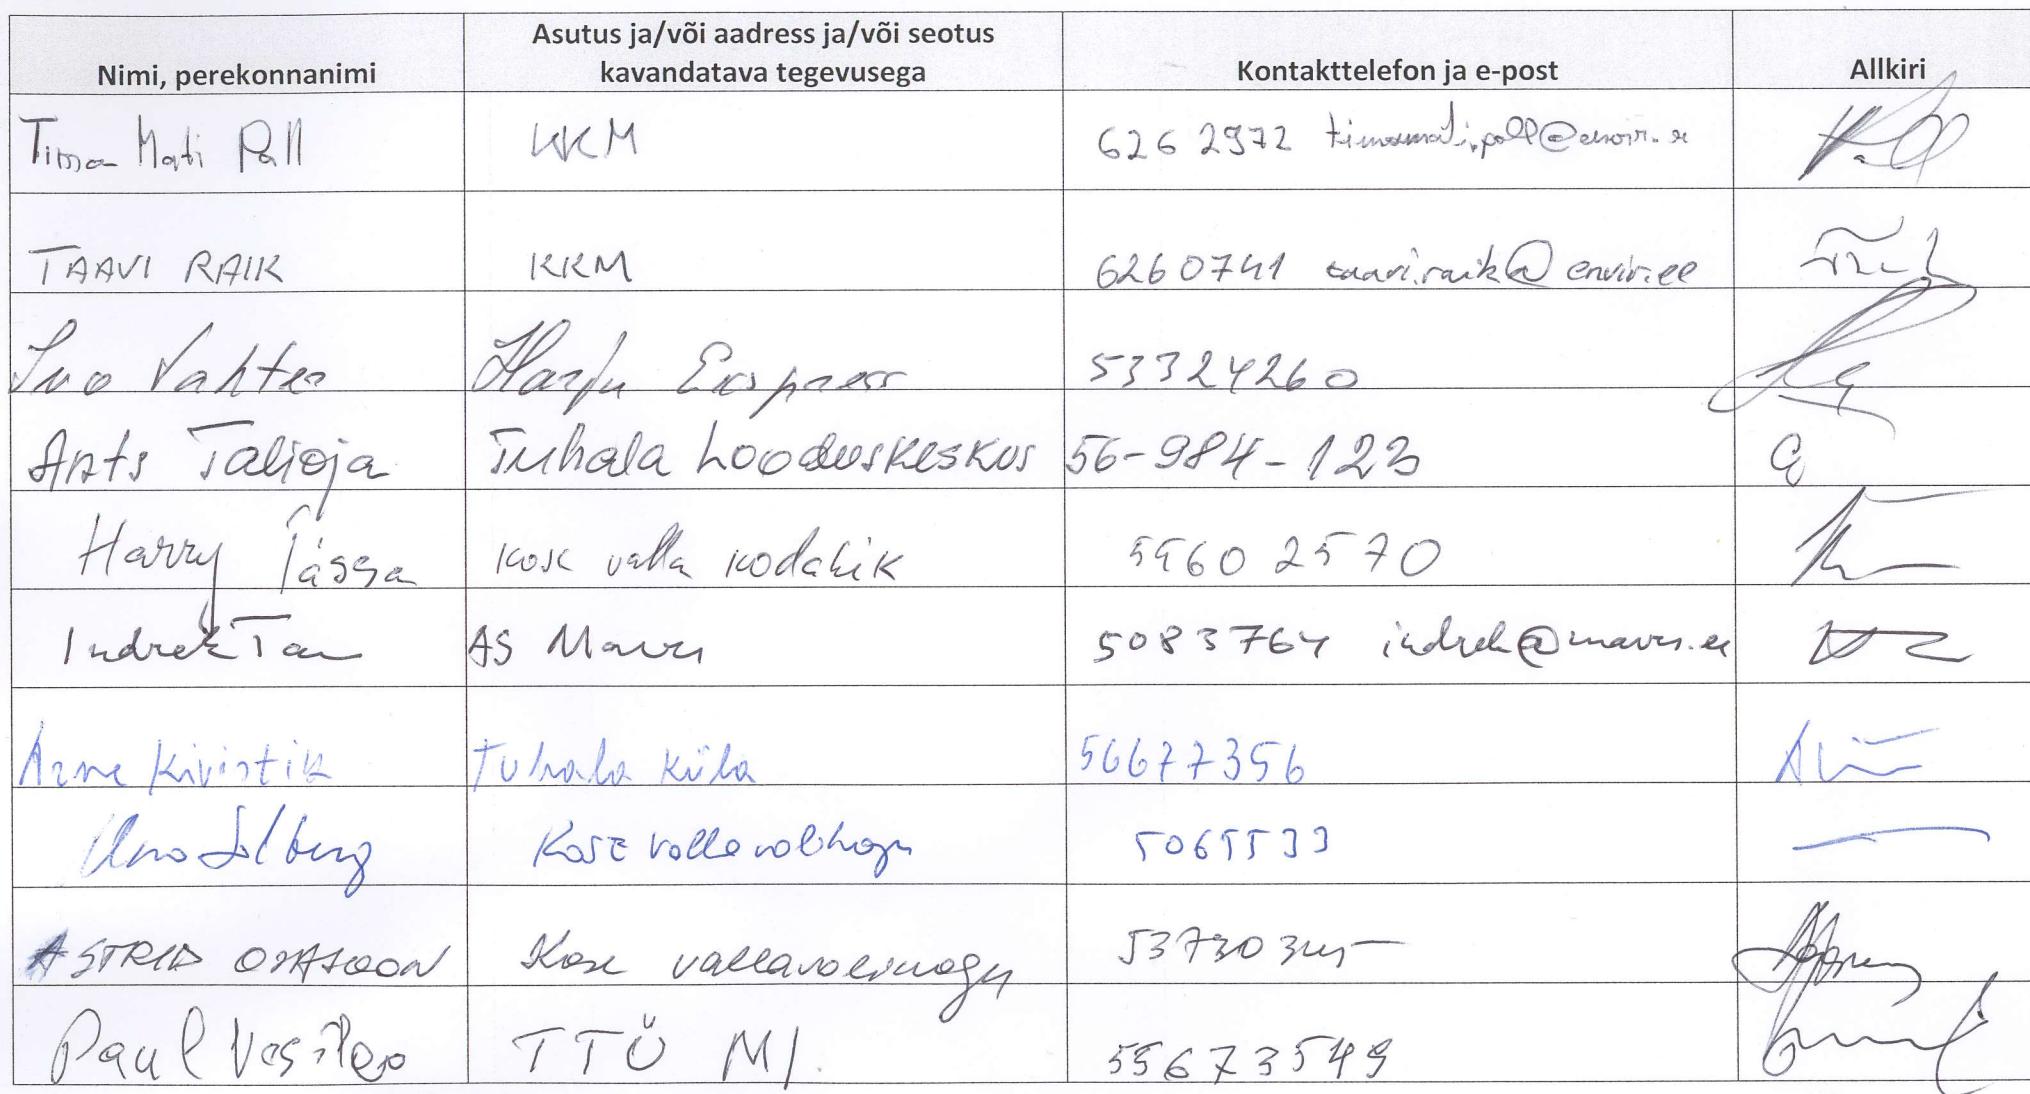 Nimi, perekonnanimi
Asutus ja/või aadress ja/või seotus
kavandatava tegevusega
Kontakttelefon ja e-post
Allkiri
Timo Mati Pall KKM 626 2972 timomati.pall@envir.ee
TAAVI RAIK KKM 6260741 taavi.raik@envir.ee
Ivo Vahter Harju Ekspress 53324260
Ants Talioja Tuhala Looduskeskus 56-984-123
Harry Tässa Kose valla kodanik 5560 2570
Indrek Tam AS Maves 5083764 indrek@maves.ee
Arne Kivistik Tuhala küla 56677356
Uno Silberg Kose vallavolikogu 5065533
ASTRID OJASOON Kose vallavolikogu
Paul TTÜ MI 55673549